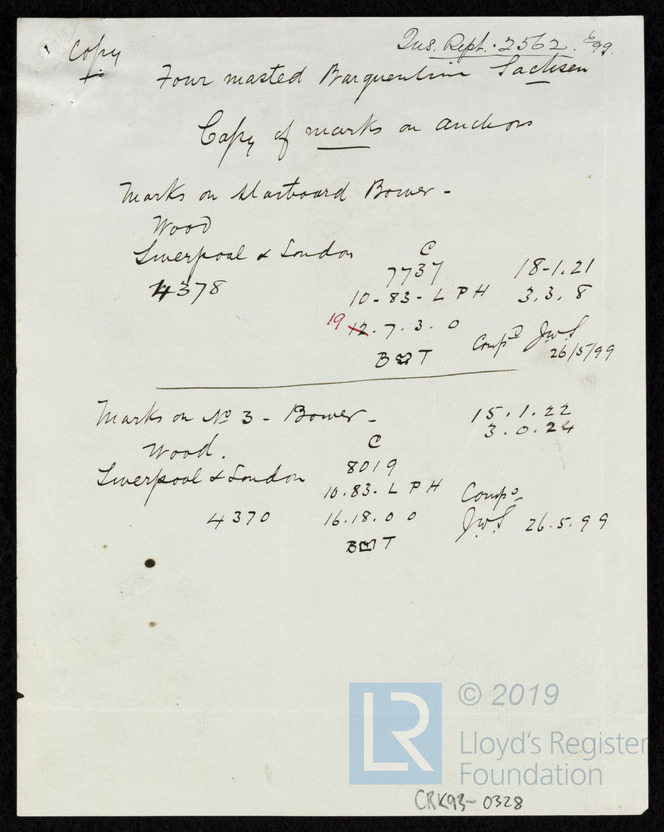 Copy
Ins. Rept. 2562. 6/99.
Four masted Barquentine Sachsen
Copy of marks on anchors
Marks on Starboard Bower -
Wood
Liverpool & London
4378
C
7737
10-83-LPH
19 12.7.3.0
B T
18-1.21
3.3.8
Comp'd JWS
26/5/99
Marks on No 3 - Bower -
Wood.
Liverpool & London
4370
C
8019
10.83-LPH
16.18.0 0
B T
15.1.22
3.0.24
Comp'd
JWS 26.5.99
LR © 2019
Lloyd's Register
Foundation
CRK93-0328